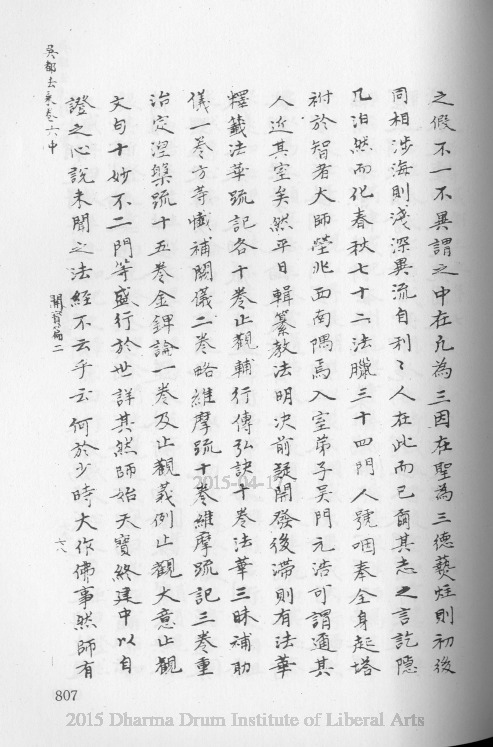 之假不一不異謂之中在凡為三因在聖為三德爇炷則初後
同相涉海則淺深異流自利〻人在此而已爾其志之言訖隱
几泊然而化春秋七十二法臘三十四門人號咽奉全身起塔
祔於智者大師塋兆西南隅焉入室弟子吳門元浩可謂邇其
人近其室矣然平日輯纂教法明決前疑開發後滯則有法華
釋籤法華疏記各十卷止觀輔行傳弘訣十卷法華三昧補助
儀一卷方等懺補闕儀二卷略維摩疏十卷維摩疏記三卷重
治定涅槃疏十五卷金錍論一卷及止觀義例止觀大意止觀
文句十妙不二門等盛行於世詳其然師始天寶終建中以自
證之心說未聞之法經不云乎云何於少時大作佛事然師有
吳都法乘卷六中
開寶篇二
六八
807
2015-04-17
2015 Dharma Drum Institute of Liberal Arts